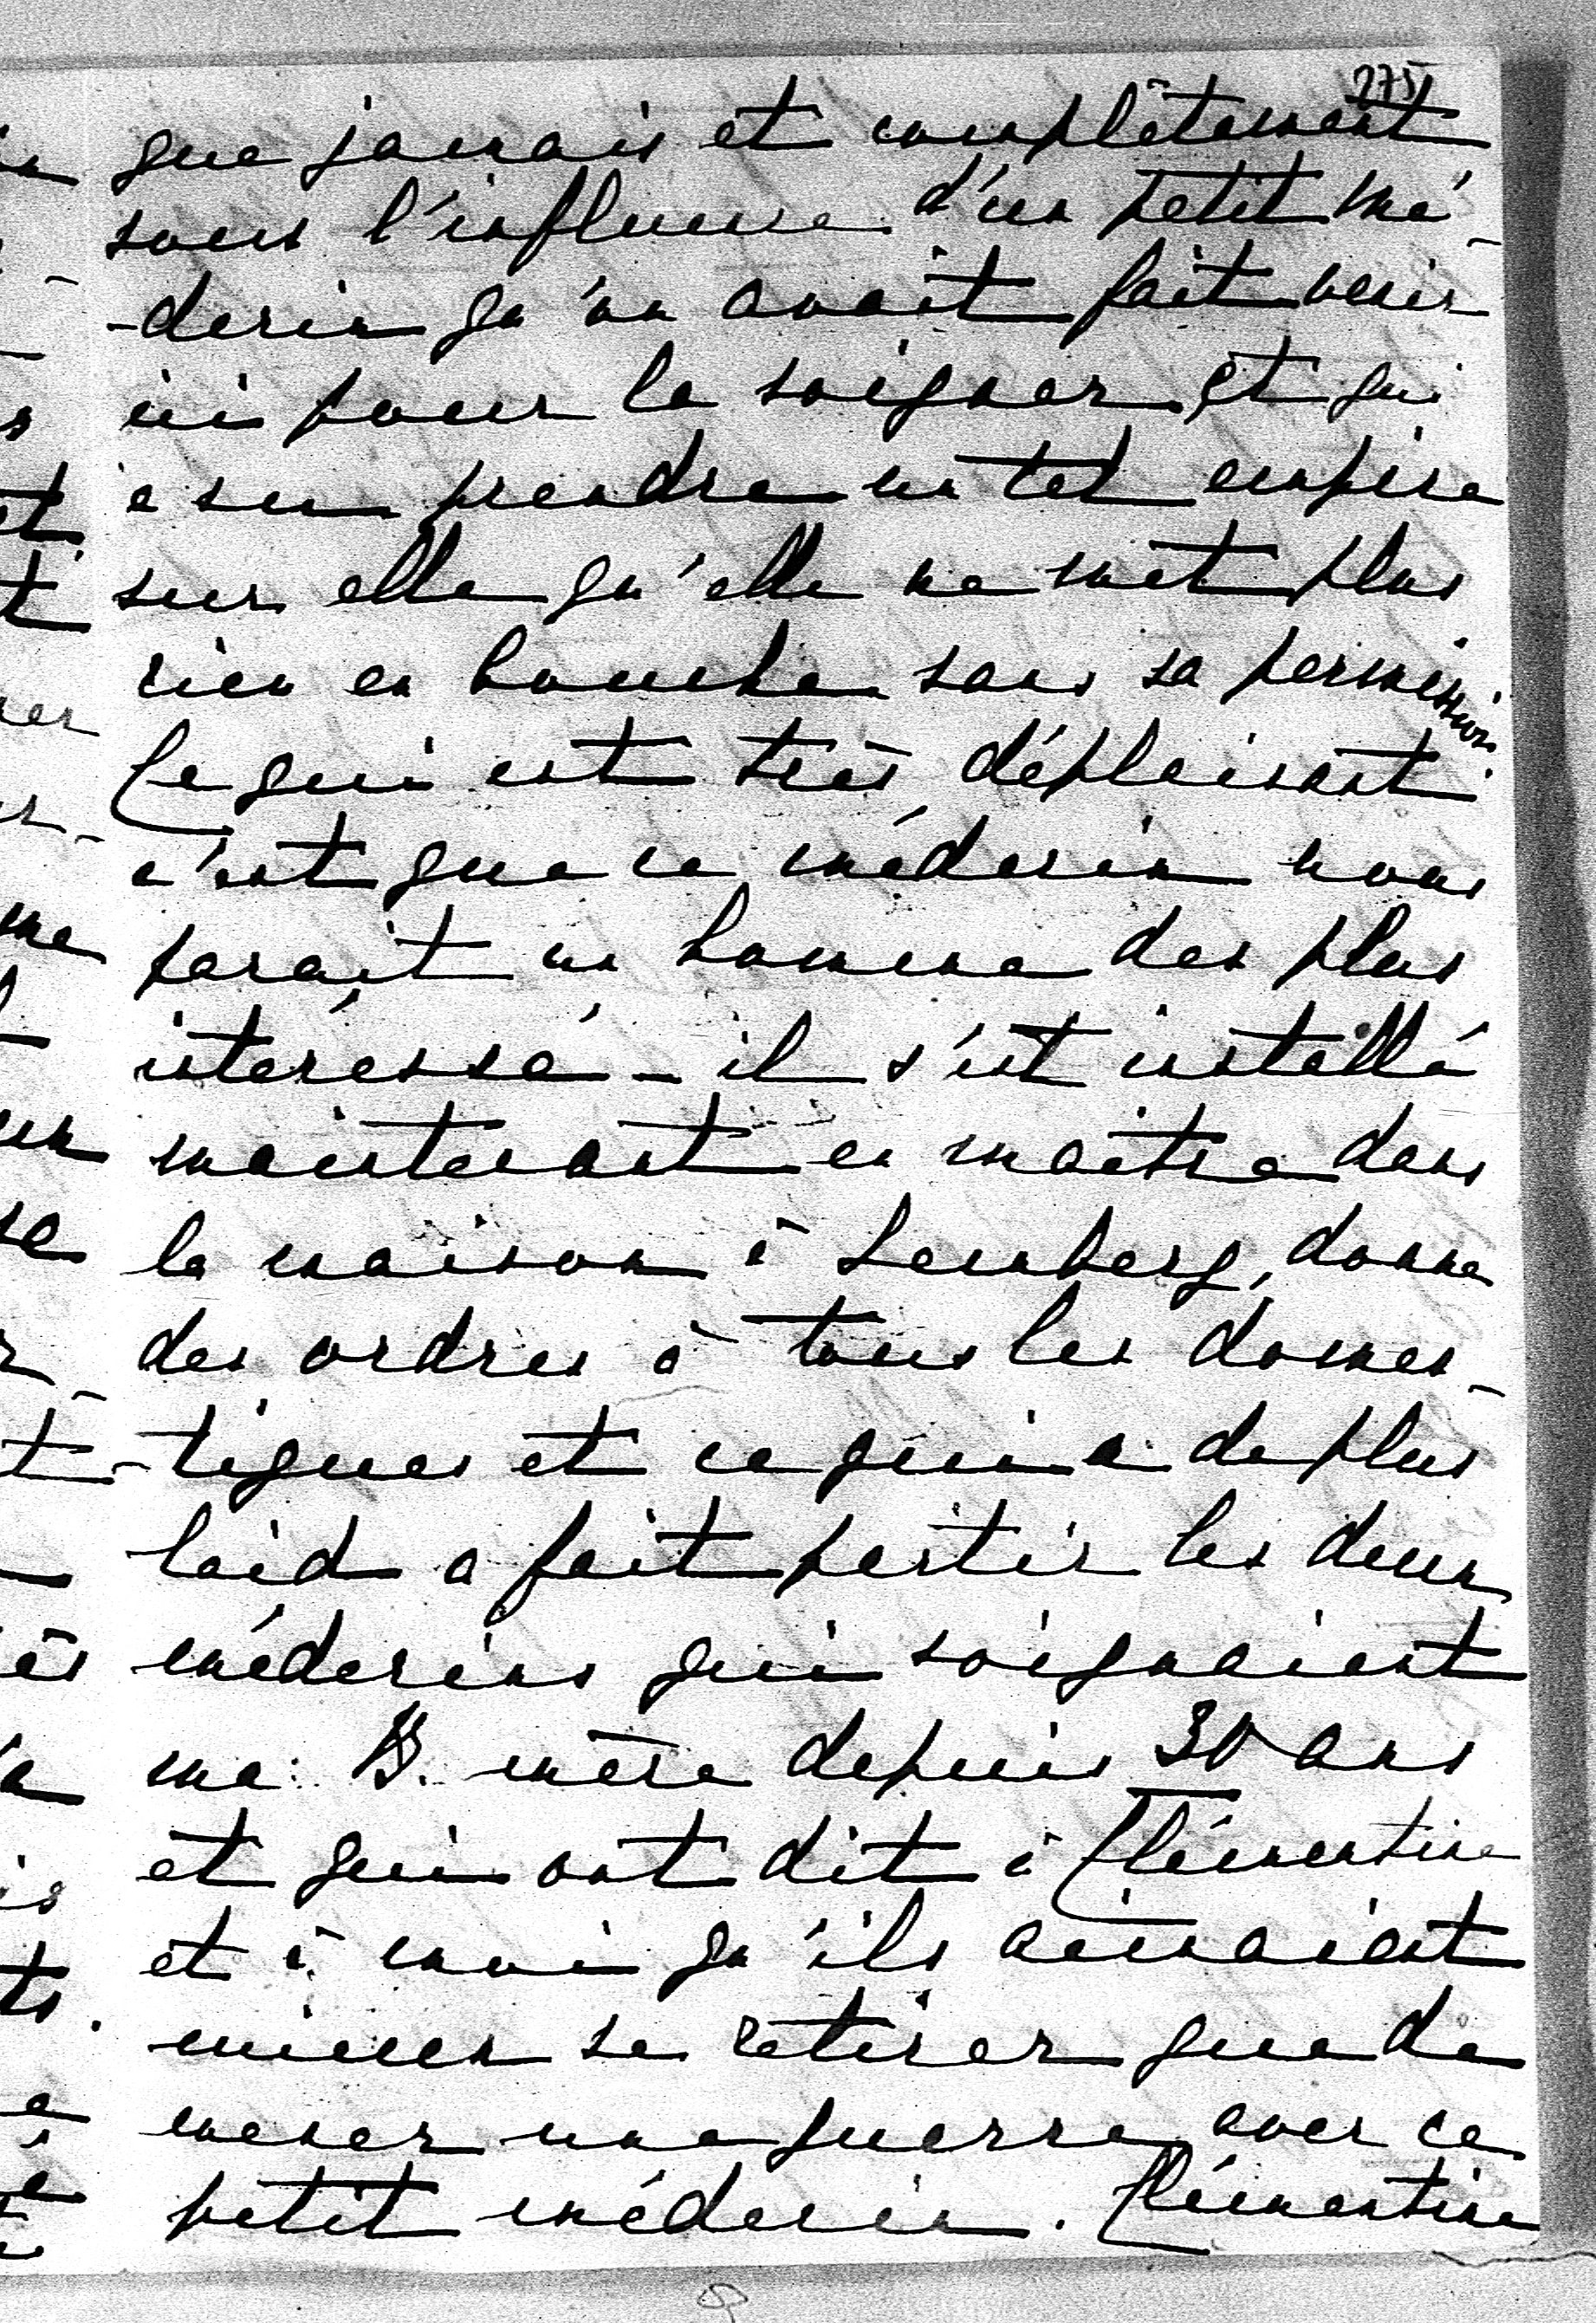 275
que jamais et complètement
sous l'influence d'un petit mé-
-decin qu'on avait fait venir
ici pour la soigner et qui
a su prendre un tel empire
sur elle qu'elle ne met plus
rien en bouche sans sa permission.
Ce qui est très déplaisant
c'est que ce médecin nous
parait un homme des plus
intéressé - il s'est installé
maintenant en maître dans
la maison à Lemberg, donne
des ordres à tous les domes-
-tiques et ce qui a de plus
laid a fait partir les deux
médecins qui soignaient
ma B. mère depuis 30 ans
et qui ont dit à Clémentine
et à moi qu'ils aimaient
mieux se retirer que de
mener une guerre avec ce
petit médecin. Clémentine